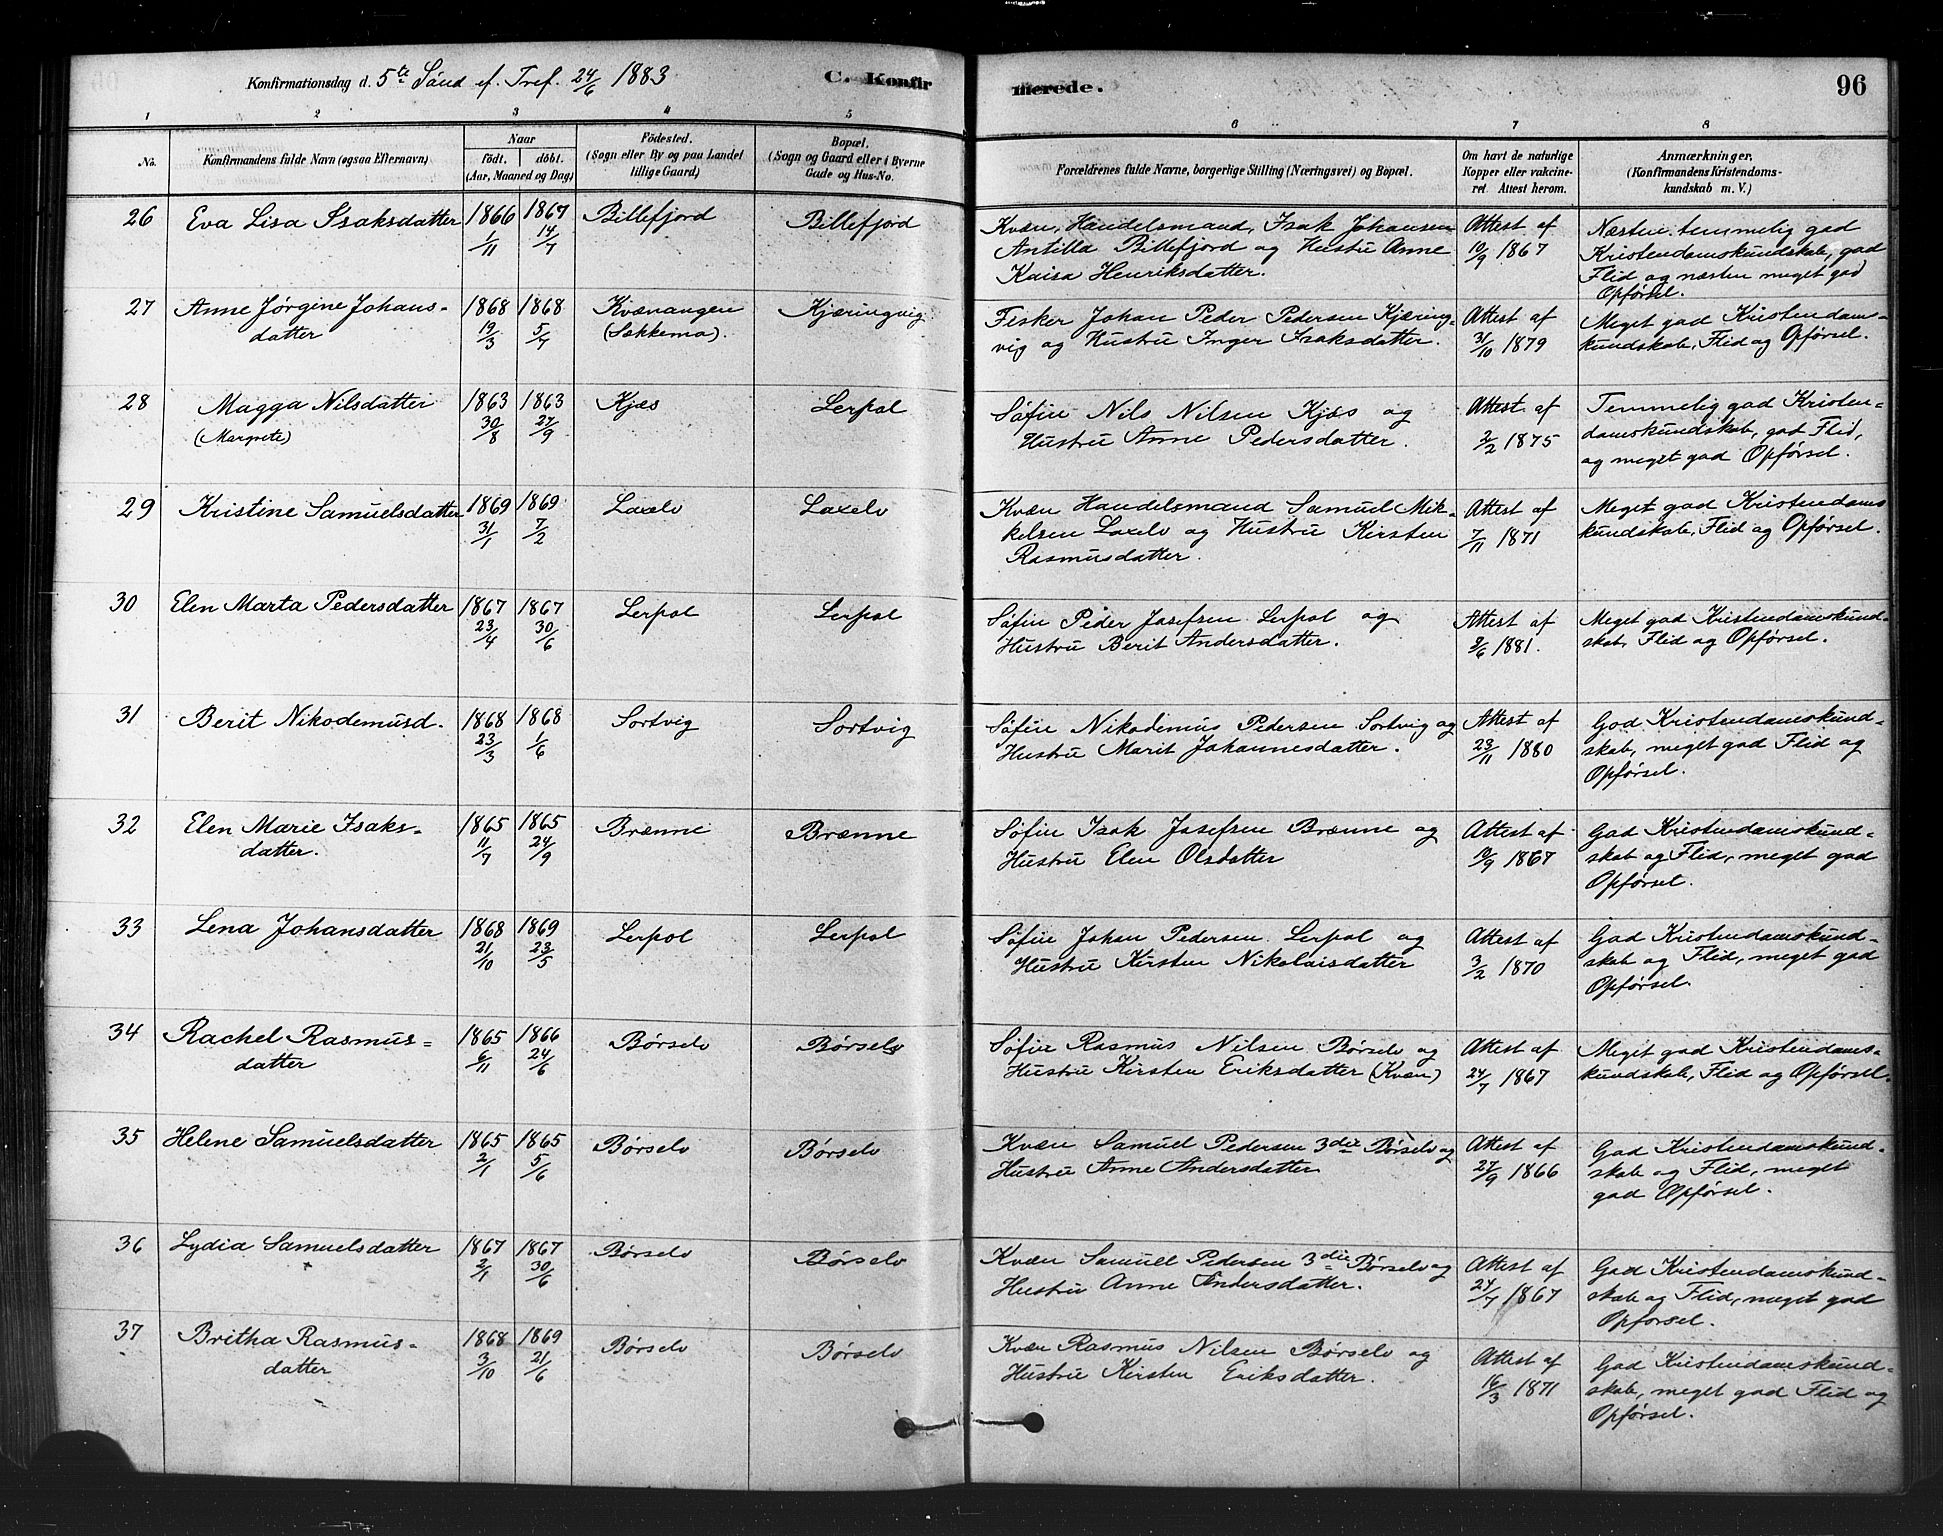 Konfirmationsdag d. 5te Sönd ef. Tref. 24/6 1883
C. Konfirmerede.
96
1 2 3 4 5 6 7 8
No.
Konfirmandens fulde Navn (ogsaa Efternavn)
Naar
födt. döbt.
(Aar, Maaned og Dag)
Födested.
(Sogn eller By og paa Landet
tillige Gaard)
Bopæl.
(Sogn og Gaard eller i Byerne
Gade og Hus-No.
Forældrenes fulde Navne, borgerlige Stilling (Næringsvei) og Bopæl.
Om havt de naturlige
Kopper eller vakcine-
ret. Attest herom.
Anmærkninger.
(Konfirmandens Kristendoms-
kundskab m. V.)
26 Eva Lisa Isaksdatter 1866 1/11 1867 14/7 Billefjord Billefjord
Kvæn, Handelsmand, Isak Johansen
Antilla Billefjord og Hustru Anne
Kaisa Henriksdatter.
Attest af
10/9 1867
Næsten temmelig god
Kristendomskundskab, god
Flid og næsten meget god
Opførsel.
27 Anne Jørgine Johans-
datter
1868 19/3 1868 5/7
Kvænangen
(Sakkemo).
Kjæringvig
Fisker Johan Peder Pedersen Kjæring-
vig og Hustru Inger Isaksdatter.
Attest af
31/10 1879
Meget god Kristendoms-
kundskab, Flid og Opførsel.
28 Magga Nilsdatter
(Margrete)
1863 30/8 1863 27/9 Kjæs Lerpol
Søfin Nils Nilsen Kjæs og
Hustru Anne Pedersdatter.
Attest af
2/2 1875
Temmelig god Kristen-
domskundskab, god Flid,
og meget god Opførsel.
29 Kristine Samuelsdatter 1869 31/1 1869 7/2 Laxelv Laxelv
Kvæn Handelsmand Samuel Mik-
kelsen Laxelv og Hustru Kirsten
Rasmusdatter.
Attest af
7/11 1871
Meget god Kristendoms
kundskab, Flid og Opførsel.
30 Elen Marta Pedersdatter 1867 23/4 1867 30/6 Lerpol Lerpol
Søfin Peder Josefsen Lerpol og
Hustru Berit Andersdatter.
Attest af
2/6 1881.
Meget god Kristendomskund-
skab, Flid og Opførsel.
31 Berit Nikodemusd. 1868 23/3 1868 1/6 Sortvig Sortvig
Søfin Nikodemus Pedersen Sortvig og
Hustru Marit Johannesdatter.
Attest af
23/11 1880
God Kristendomskund-
skab, meget god Flid og
Opførsel.
32 Elen Marie Isaks-
datter.
1865 11/7 1865 24/9 Brænne Brænne
Søfin Isak Josefsen Brænne og
Hustru Elen Olsdatter
Attest af
10/9 1867
God Kristendomskund-
skab og Flid, meget god
Opførsel.
33 Lena Johansdatter 1868 21/10 1869 23/5 Lerpol Lerpol
Søfin Johan Pedersen Lerpol og
Hustru Kirsten Nikolaisdatter
Attest af
3/2 1870
God Kristendomskund-
skab og Flid, meget god
Opførsel.
34 Rachel Rasmus-
datter
1865 6/11 1866 24/6 Børselv Børselv
Søfin Rasmus Nilsen Børselv og
Hustru Kirsten Eriksdatter (Kvæn)
Attest af
24/7 1867
Meget god Kristendoms-
kundskab, Flid og Opførsel.
35 Helene Samuelsdatter 1865 2/1 1865 5/6 Børselv Børselv
Kvæn Samuel Pedersen 3die Børselv og
Hustru Anne Andersdatter
Attest af
27/9 1866
God Kristendomskund-
skab og Flid, meget
god Opførsel.
36 Lydia Samuelsdatter 1867 2/1 1867 30/6 Børselv Børselv
Kvæn Samuel Pedersen 3die Børselv og
Hustru Anne Andersdatter.
Attest af
24/7 1867
God Kristendomskund-
skab og Flid, meget god
Opførsel.
37 Britha Rasmus-
datter
1868 3/10 1869 21/6 Børselv Børselv
Kvæn Rasmus Nilsen Børselv og
Hustru Kirsten Eriksdatter.
Attest af
16/3 1871
God Kristendomskund-
skab, meget god Flid og
Opførsel.